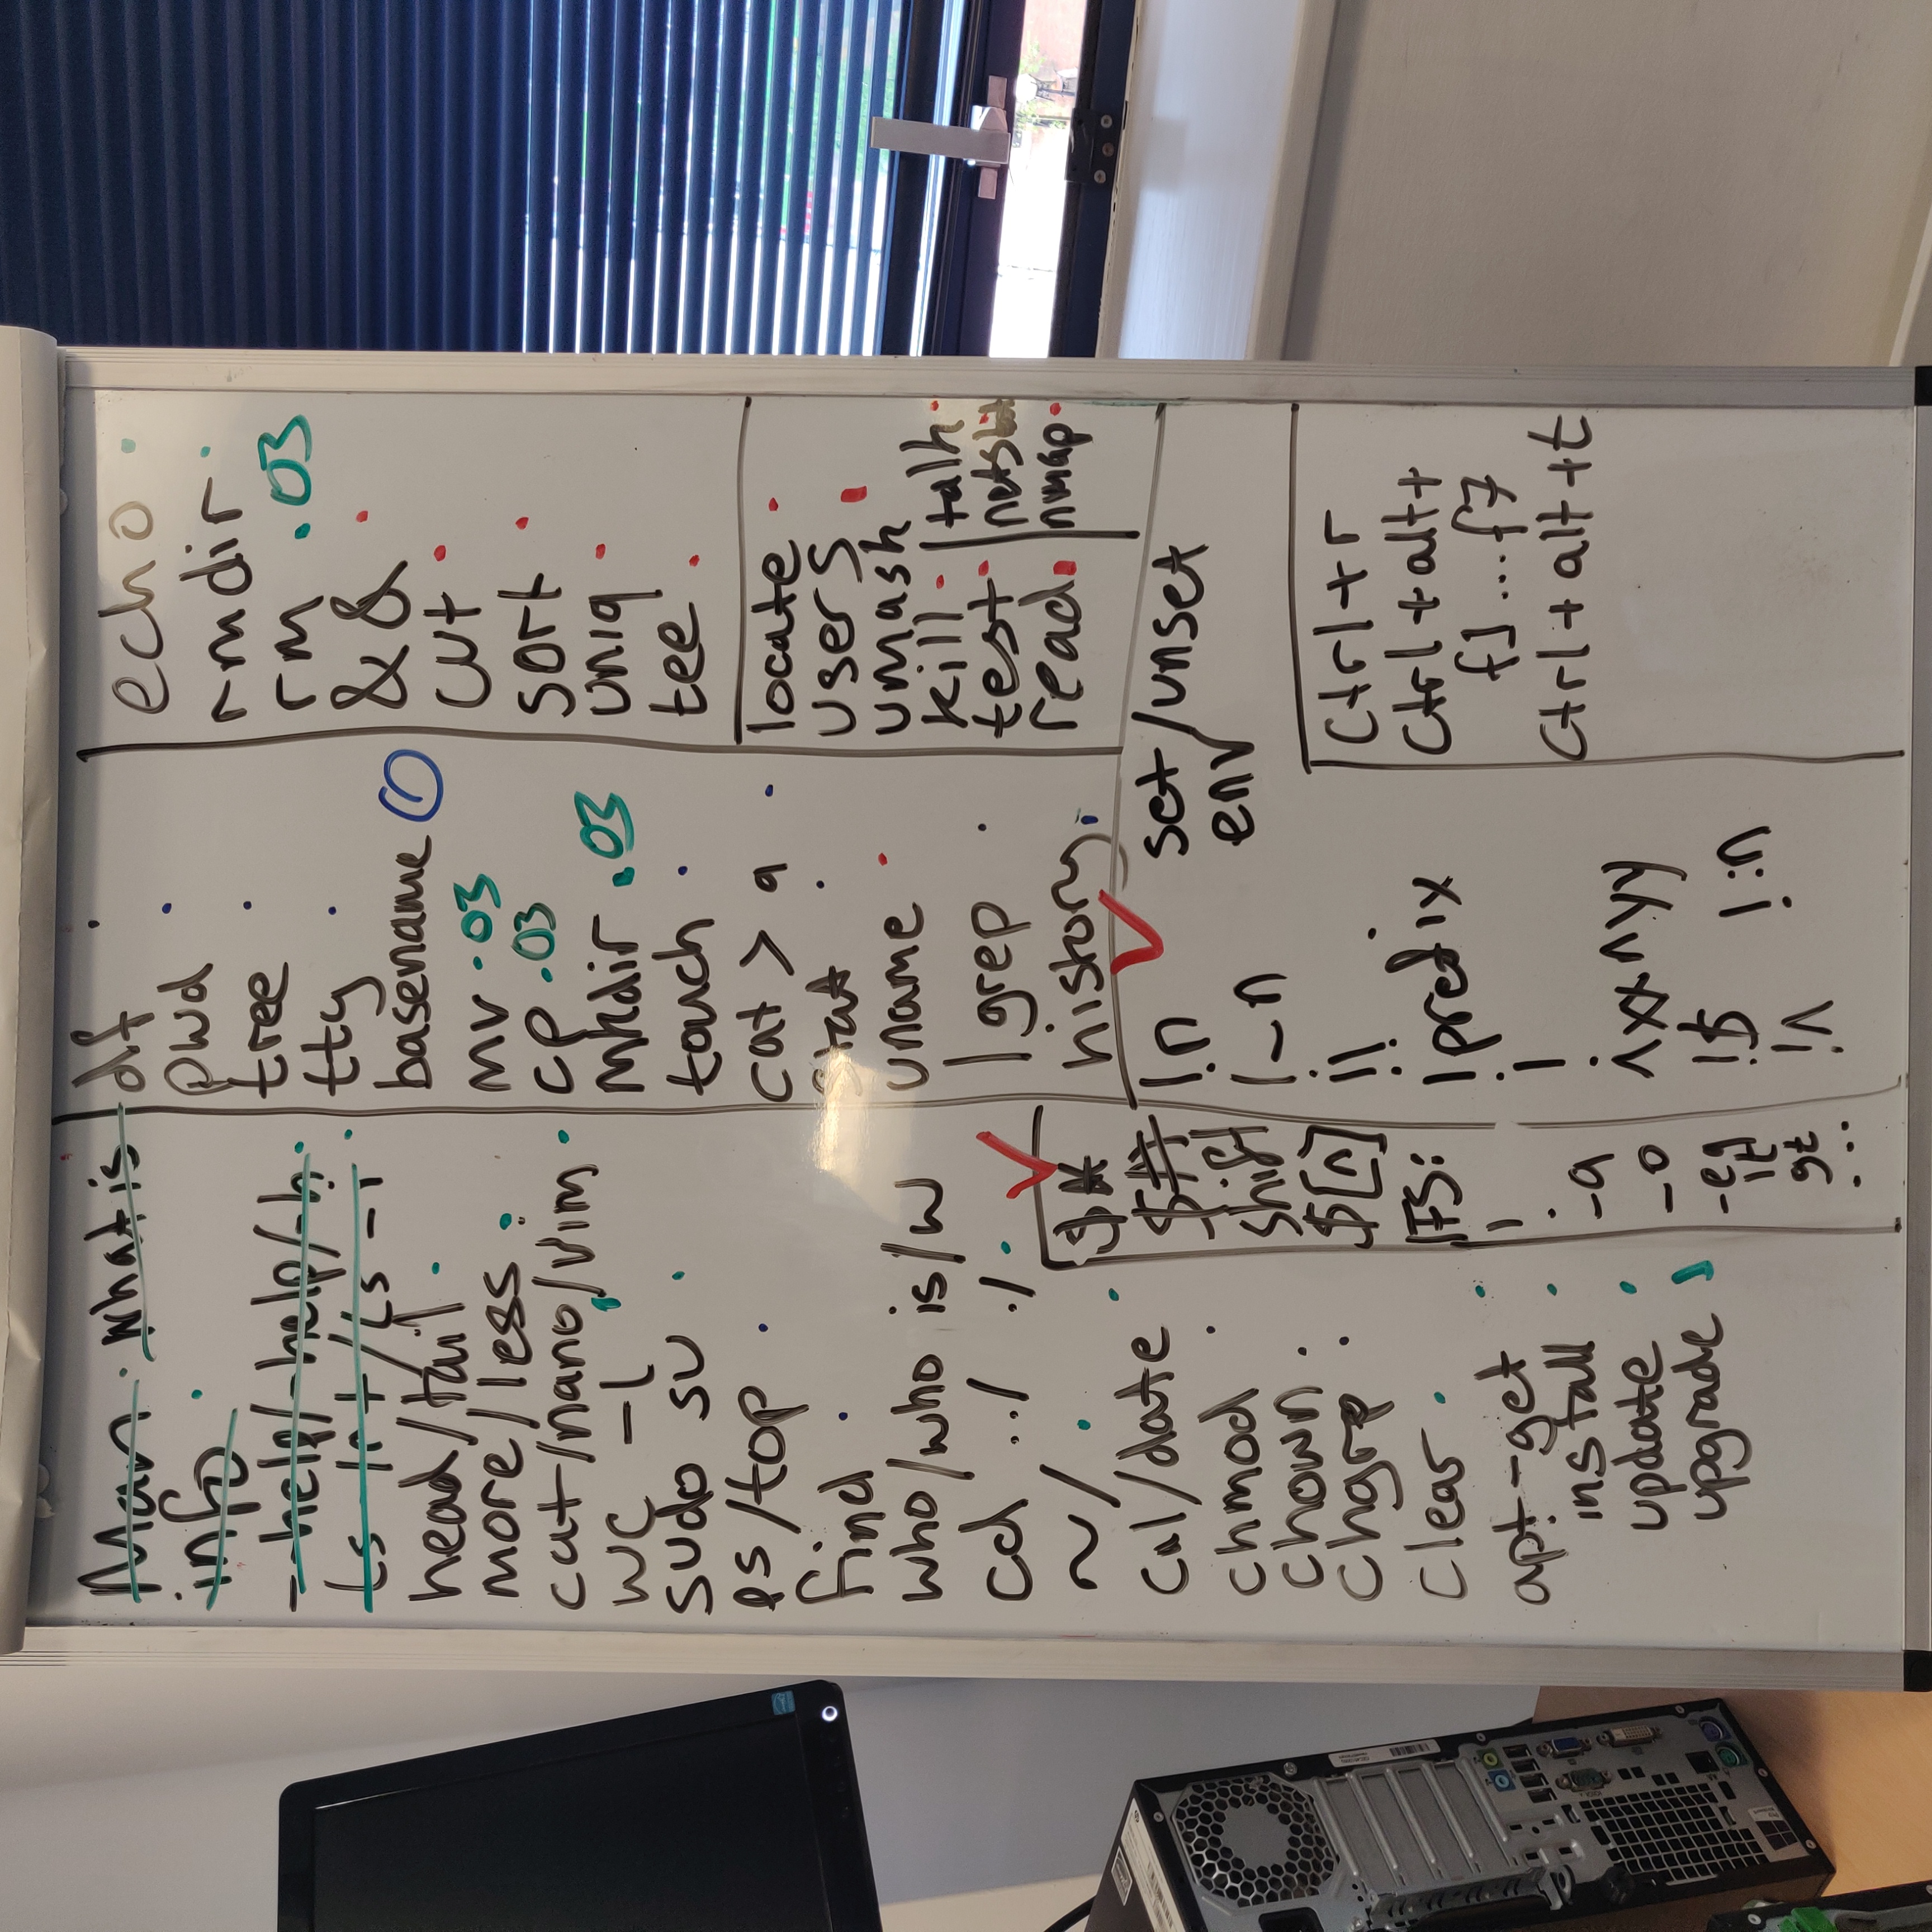 Man · what is
info
--help/-help/-h
head/tail
more/less
cat/nano/vim
wc -l
sudo su
ps/top
find
who/who is/w
cd ../ ./
~/
cal/date
chmod
chown
chgrp
clear
apt-get
install
update
upgrade
$*
$#
shift
$[n]
IFS:
!
-a
-o
-eq
lt
gt
...
df
pwd
tree
tty
basename
mv .03
cp .03
mkdir .03
touch
cat > a
stat
uname
| grep
history
!n
!-n
!!
!prefix
!
^xx^yy
!$
!:n
!^
echo
rmdir
rm .03
&&
cut
sort
uniq
tee
locate
users
umask
kill | talk
test | netstat
read | nmap
set/unset
env
Ctrl+r
Ctrl+alt+
f1...f7
Ctrl+alt+t